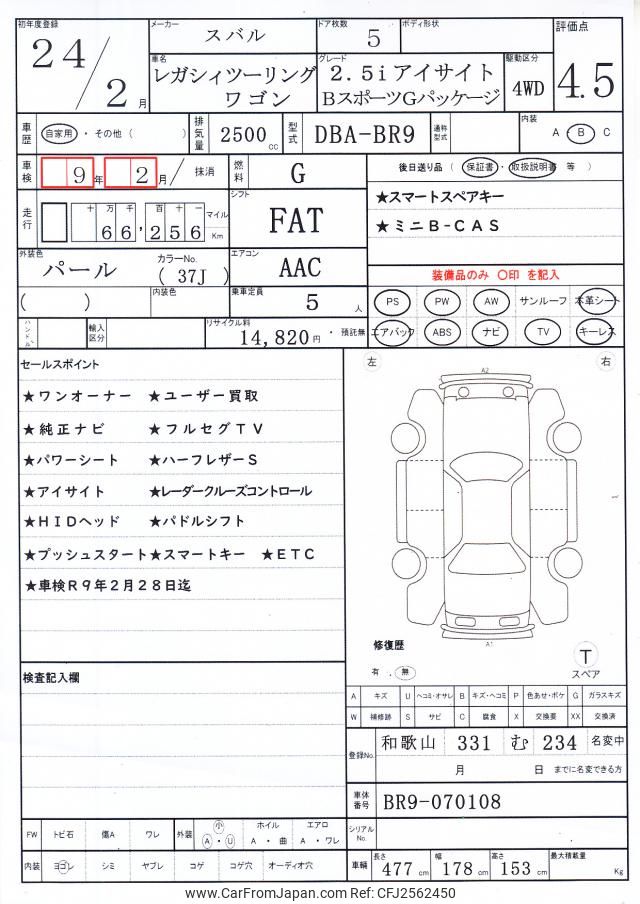 初年度登録 メーカー ドア枚数 ボディ形状 評価点
24/2月 スバル 5
車名 グレード 駆動区分
レガシィツーリング 2.5iアイサイト 4WD 4.5
ワゴン BスポーツGパッケージ
車歴 自家用・その他( ) 排気量 2500cc 型式 DBA-BR9 通称型式 内装 A・B・C
車検 9年 2月/ 抹消 燃料 G 後日送り品(保証書・取扱説明書 等)
走行 十万千百十一 マイル Km シフト ★スマートスペアキー
66,256 FAT ★ミニB-CAS
外装色 カラーNo. エアコン
パール (37J) AAC 装備品のみ 〇印 を記入
( ) 内装色 乗車定員 5人 PS PW AW サンルーフ 本革シート
ハンドル 輸入区分 リサイクル料 14,820円・預託無 エアバック ABS ナビ TV キーレス
セールスポイント 左 右
A2
★ワンオーナー ★ユーザー買取
★純正ナビ ★フルセグTV
★パワーシート ★ハーフレザーS
★アイサイト ★レーダークルーズコントロール
★HIDヘッド ★パドルシフト
★プッシュスタート★スマートキー ★ETC
★車検R9年2月28日迄
A1
修復歴 T
有・無 スペア
検査記入欄
A キズ U ヘコミ・オサレ B キズ・ヘコミ P 色あせ・ボケ G ガラスキズ
W 補修跡 S サビ C 腐食 X 交換要 XX 交換済
登録No. 和歌山 331 む 234 名変中
月 日 までに名変できる方
車体番号 BR9-070108
FW トビ石 傷A ワレ 外装 小 A・U ホイル A・曲 エアロ A・ワレ シリアルNo.
内装 ヨゴレ シミ ヤブレ コゲ コゲ穴 オーディオ穴 車輌 長さ 477cm 幅 178cm 高さ 153cm 最大積載量 Kg
www.CarFromJapan.com Ref: CFJ2562450